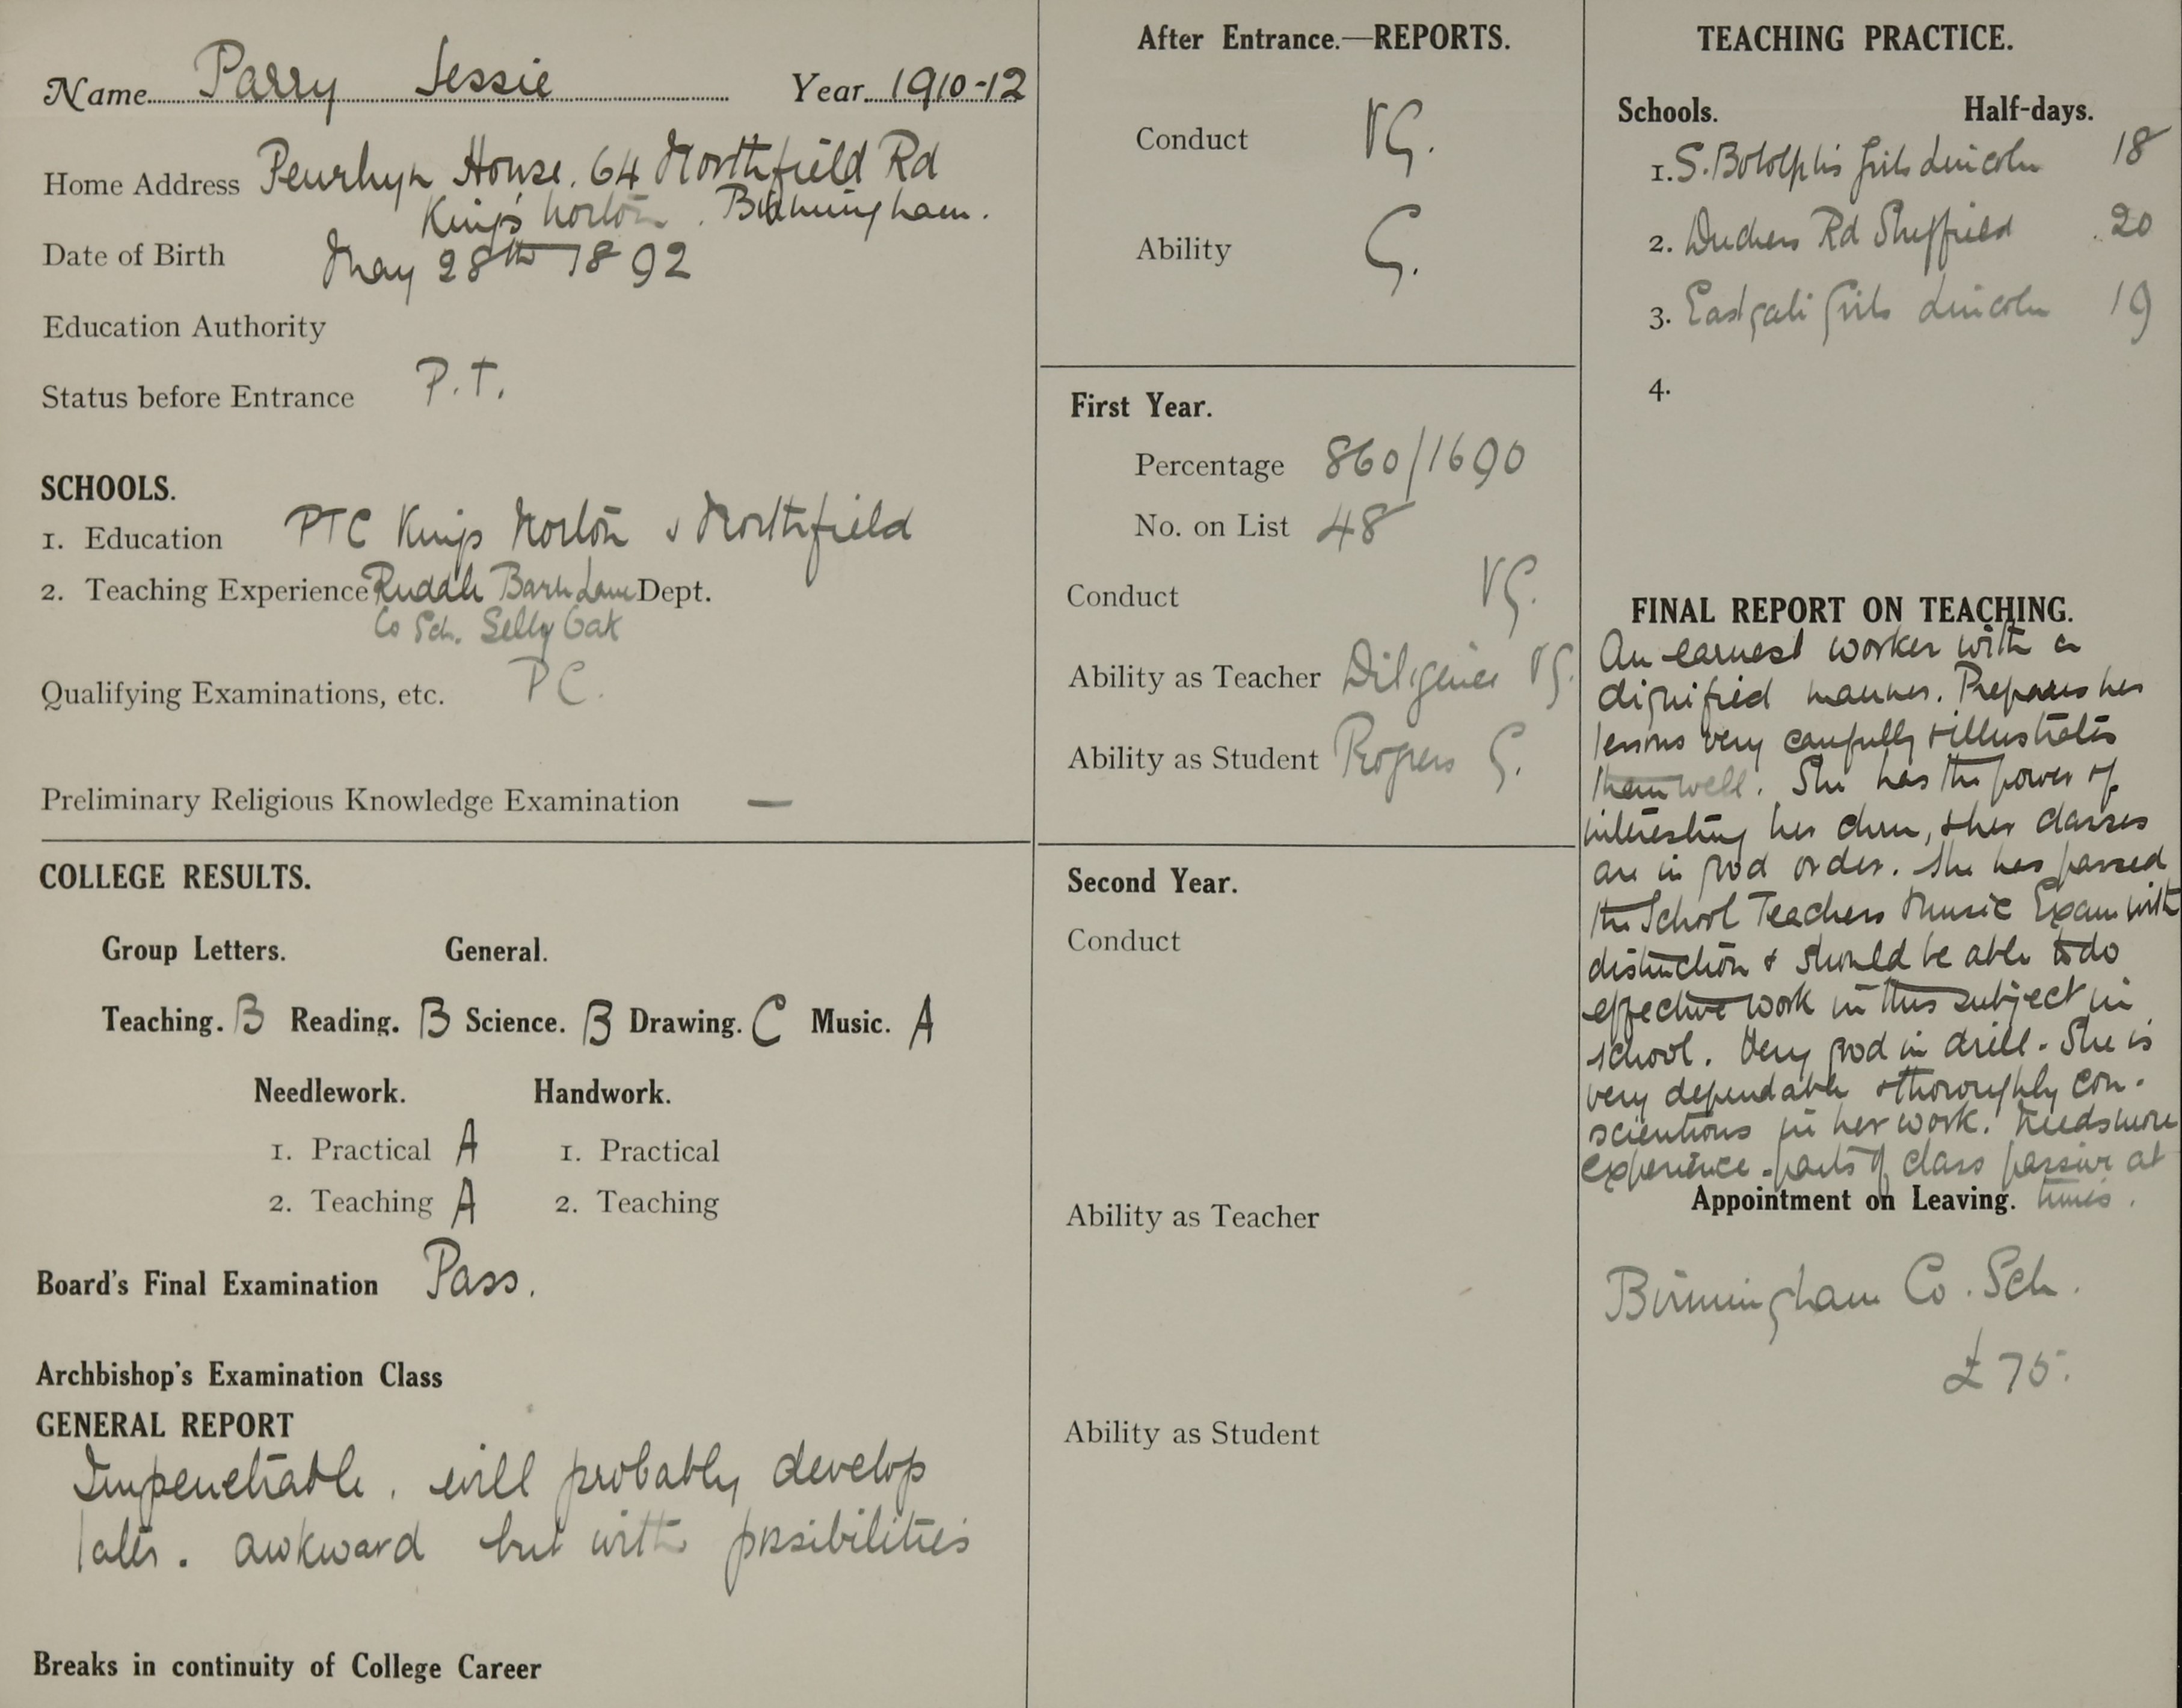 Name Parry Jessie Year 1910-12
Home Address Penrhyn House. 64 Northfield Rd
King's Norton. Birmingham.
Date of Birth May 28th 1892
Education Authority
Status before Entrance P.T.
SCHOOLS.
1. Education PTC Kings Norton & Northfield
2. Teaching Experience Barn Lane Dept.
Co Sch. Selly Oak
Qualifying Examinations, etc. PC.
Preliminary Religious Knowledge Examination —
COLLEGE RESULTS.
Group Letters. General.
Teaching. B Reading. B Science. B Drawing. C Music. A
Needlework. Handwork.
1. Practical A 1. Practical
2. Teaching A 2. Teaching
Board's Final Examination Pass.
Archbishop's Examination Class
GENERAL REPORT
Impenetrable. will probably develop
later. awkward but with possibilities
Breaks in continuity of College Career
After Entrance.—REPORTS.
Conduct VG.
Ability G.
First Year.
Percentage 860/1690
No. on List 48
Conduct VG.
Ability as Teacher Diligence VG.
Ability as Student Progress G.
Second Year.
Conduct
Ability as Teacher
Ability as Student
TEACHING PRACTICE.
Schools. Half-days.
1. S. Botolph's Girls Lincoln 18
2. Duchess Rd Sheffield 20
3. Eastgate Girls Lincoln 19
4.
FINAL REPORT ON TEACHING.
An earnest worker with a
dignified manner. Prepares her
lessons very carefully & illustrates
them well. She has the power of
interesting her chn, & her classes
are in good order. She has passed
the School Teachers Music Exam with
distinction & should be able to do
effective work in this subject in
school. Very good in drill. She is
very dependable & thoroughly con-
scientious in her work. Needs more
experience - parts of class passive at
times.
Appointment on Leaving.
Birmingham Co. Sch.
£75.